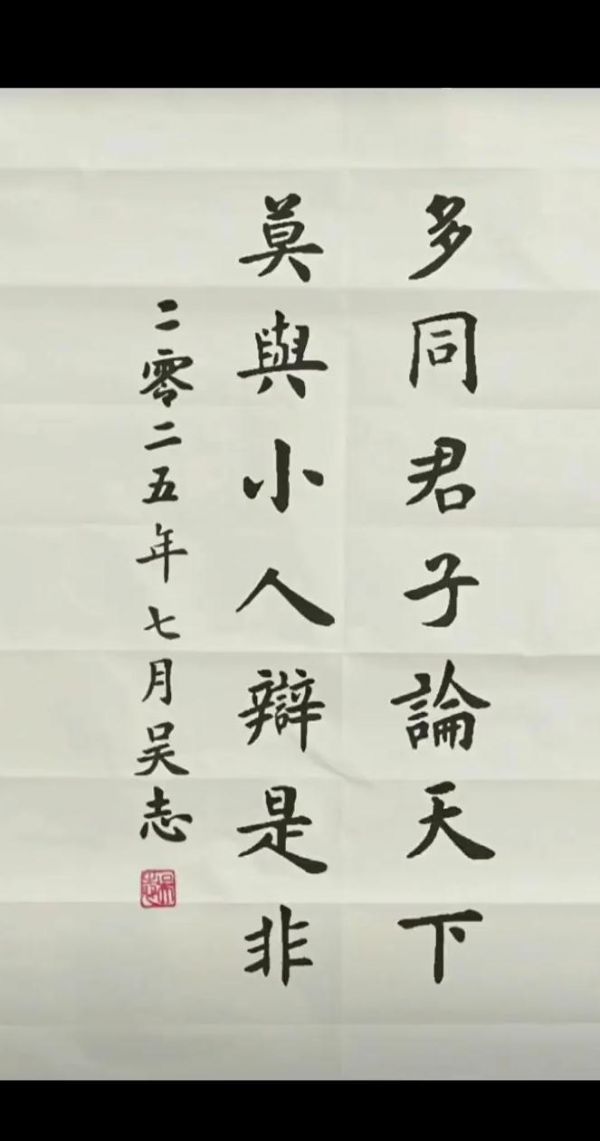 多同君子論天下
莫與小人辯是非
二零二五年七月吴志
吴志